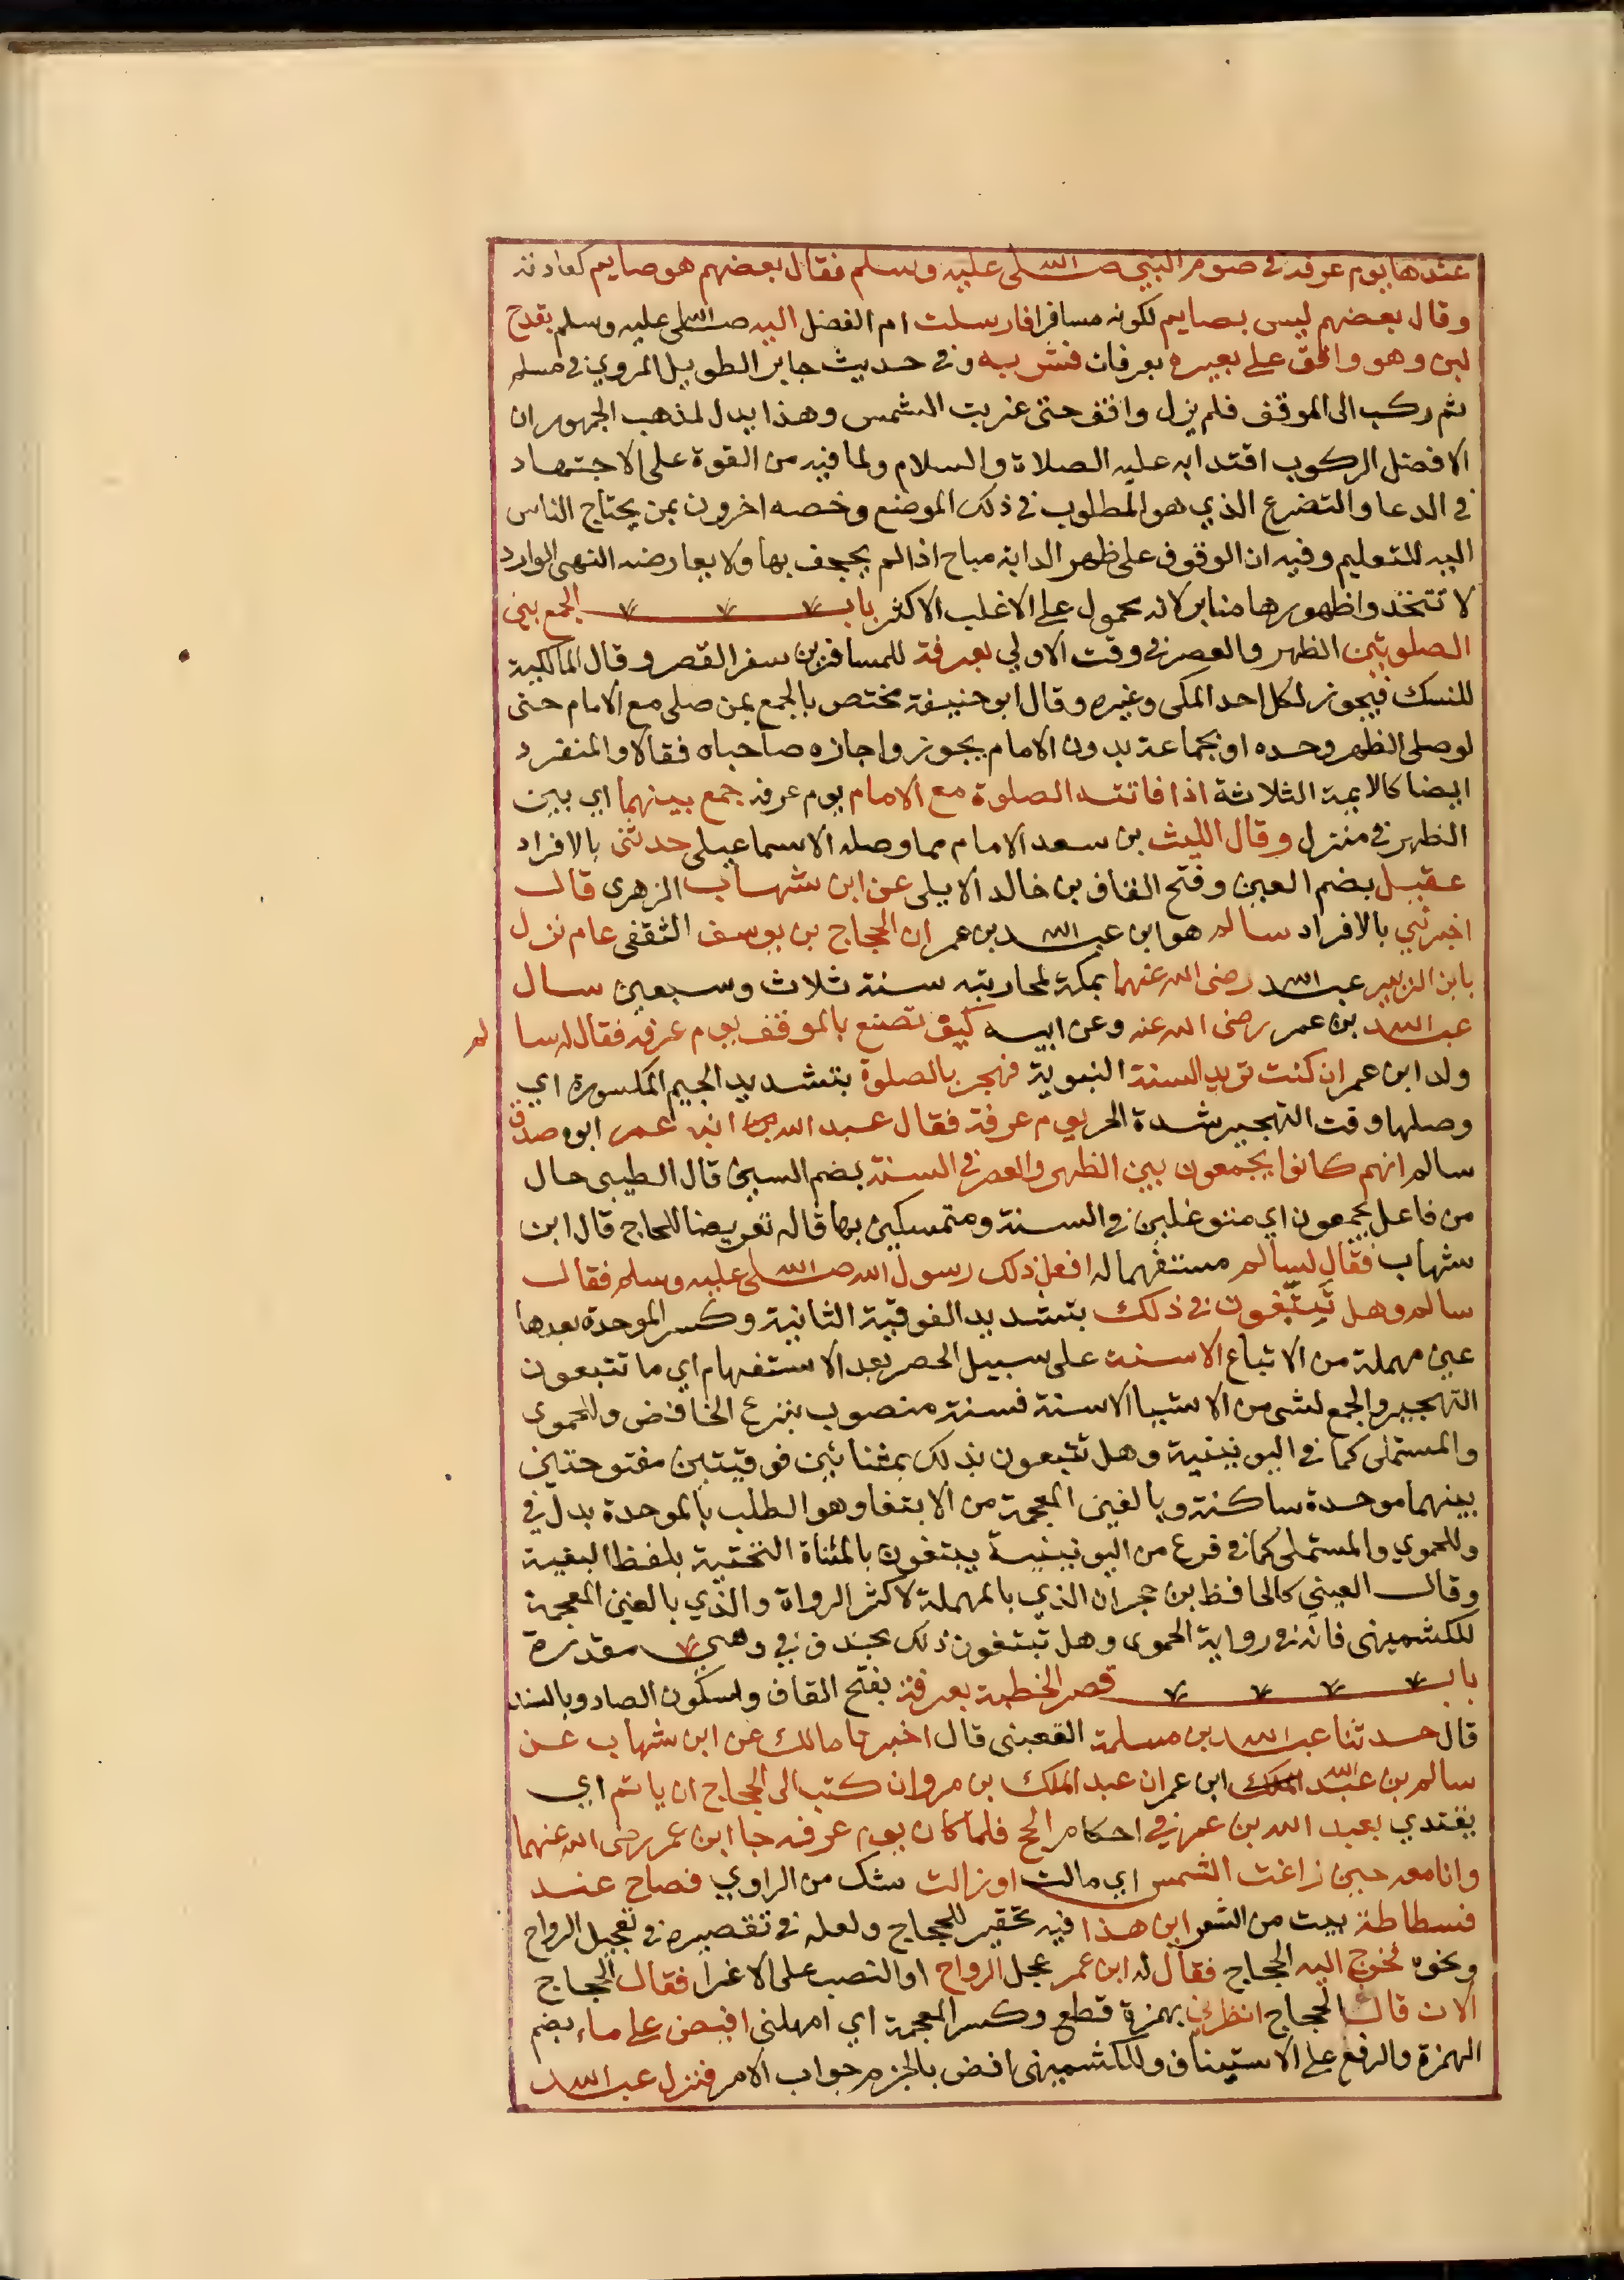 عندها يوم عرفه في صوم النبي صلى الله عليه وسلم فقال بعضهم هو صايم كعادته
وقال بعضهم ليس بصايم لكونه مسافرا فارسلت ام الفضل اليه صلى الله عليه وسلم بقدح
لبن وهو واقف على بعيره بعرفات فشربه وفي حديث جابر الطويل المروي في مسلم
ثم ركب الى الموقف فلم يزل واقف حتى غربت الشمس وهذا يدل لمذهب الجمهور ان
الافضل الركوب اقتدا به عليه الصلاة والسلام ولما فيه من القوة على الاجتهاد
في الدعا والتضرع الذي هو المطلوب في ذلك الموضع وخصه اخرون بمن يحتاج الناس
اليه للتعليم وفيه ان الوقوف على ظهر الدابة مباح اذا لم يجحف بها ولا يعارضه النهي الوارد
لا تتخذوا ظهورها منابر لانه محمول على الاغلب الاكثر باب الجمع بين
الصلوتين الظهر والعصر في وقت الاولي بعرفة للمسافرين سفر القصر وقال المالكية
للنسك فيجوز لكل احد المكى وغيره وقال ابو حنيفة مختص بالجمع بمن صلى مع الامام حتى
لو صلى الظهر وحده او بجماعة بدون الامام يجوز واجازه صاحباه فقالا والمنفرد
ايضا كالايمة الثلاثة اذا فاتته الصلوة مع الامام يوم عرفه جمع بينهما اي بين
الظهر في منزل وقال الليث بن سعد الامام مما وصله الاسماعيلى حدثنى بالافراد
عقيل بضم العين وفتح القاف بن خالد الايلى عن ابن شهاب الزهرى قال
اخبرني بالافراد سالم هو ابن عبد الله بن عمر ان الحجاج بن يوسف الثقفى عام نزل
بابن الزبير عبد الله رضى الله عنهما بمكة لمحاربته سنة ثلاث وسبعين سال
عبد الله بن عمر رضى الله عنه وعن ابيه كيف تصنع بالموقف يوم عرفه فقال له سا لم
ولد ابن عمر ان كنت تريد السنة النبوية فهجر بالصلوة بتشديد الجيم المكسورة اي
وصلها وقت التهجير شدة الحر يوم عرفة فقال عبد الله بن ابنه عمر ابوه صدق
سالم انهم كانوا يجمعون بين الظهر والعصر في السنة بضم السين قال الطيبى حال
من فاعل يجمعون اي متوغلين في السنة ومتمسكين بها قاله تعريضا للحاج قال ابن
شهاب فقال لسالم مستفهما له افعل ذلك رسول الله صلى الله عليه وسلم فقال
سالم وهل تتبعون في ذلك بتشديد الفوقية الثانية وكسر الموحدة بعدها
عين مهملة من الاتباع الا سنة على سبيل الحصر بعد الاستفهام اي ما تتبعون
التهجير والجمع لشى من الاشيا الا سنة فسنة منصوب بنزع الخافض وللحموى
والمستملى كما في اليونينية وهل تتبعون بذلك بمثناتين فوقيتين مفتوحتين
بينهما موحدة ساكنة وبالغين المعجمة من الابتغا وهو الطلب بالموحدة بدل في
وللحموي والمستملى كما في فرع من اليونينية يبتغون بالمثناة التحتية بلفظ الغيبة
وقال العينى كالحافظ بن حجر ان الذي بالمهملة لاكثر الرواة والذي بالغين المعجمة
للكشميهنى فانه في رواية الحموى وهل تبتغون ذلك بحذف في وهي مقدرة
باب قصر الخطبة بعرفة بفتح القاف واسكون الصاد وبالسند
قال حدثنا عبد الله بن مسلمة القعبنى قال اخبرنا مالك عن ابن شهاب عن
سالم بن عبد الله الملك ابن عمر ان عبد الملك بن مروان كتب الى الحجاج ان ياتم اي
يقتدي بعبد الله بن عمر في احكام الحج فلما كان يوم عرفه جا ابن عمر رضى الله عنهما
وانا معه حين زاغت الشمس اي مالت او زالت شك من الراوي فصاح عند
فسطاطة بيت من الشعر اين هذا فيه تحقير للحجاج ولعله في تقصيره في تعجيل الرواح
ونحوه فخرج اليه الحجاج فقال له ابن عمر عجل الرواح او النصب على الاغرا فقال الحجاج
الان قال الحجاج انظرني بهمزة قطع وكسر المعجمة اي امهلنى افيض على ماء بضم
الهمزة والرفع على الاستيناف وللكشميهنى افض بالجزم جواب الامر فنزل عبد الله